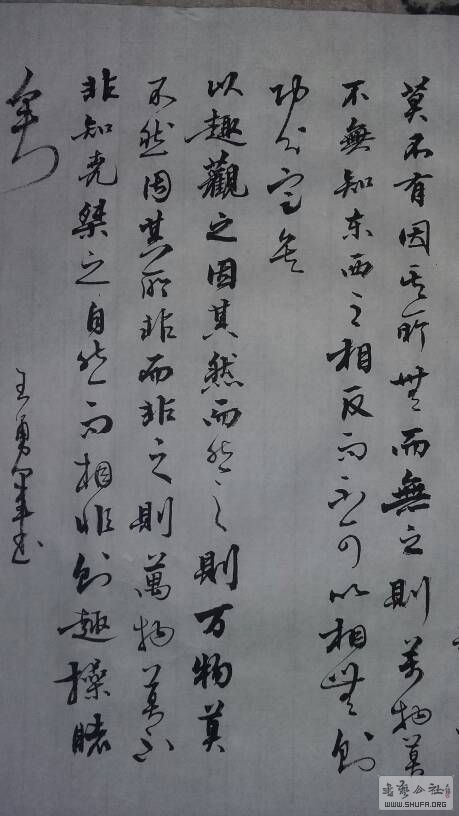 莫不有因其所無而無之則萬物莫
不無知东西之相反而不可以相無則
功分定矣
以趣觀之因其然而然之則万物莫
不然因其所非而非之則萬物莫不
非知尧桀之自然而相非則趣操睹
矣
王勇军书
WWW.SHUFA.ORG